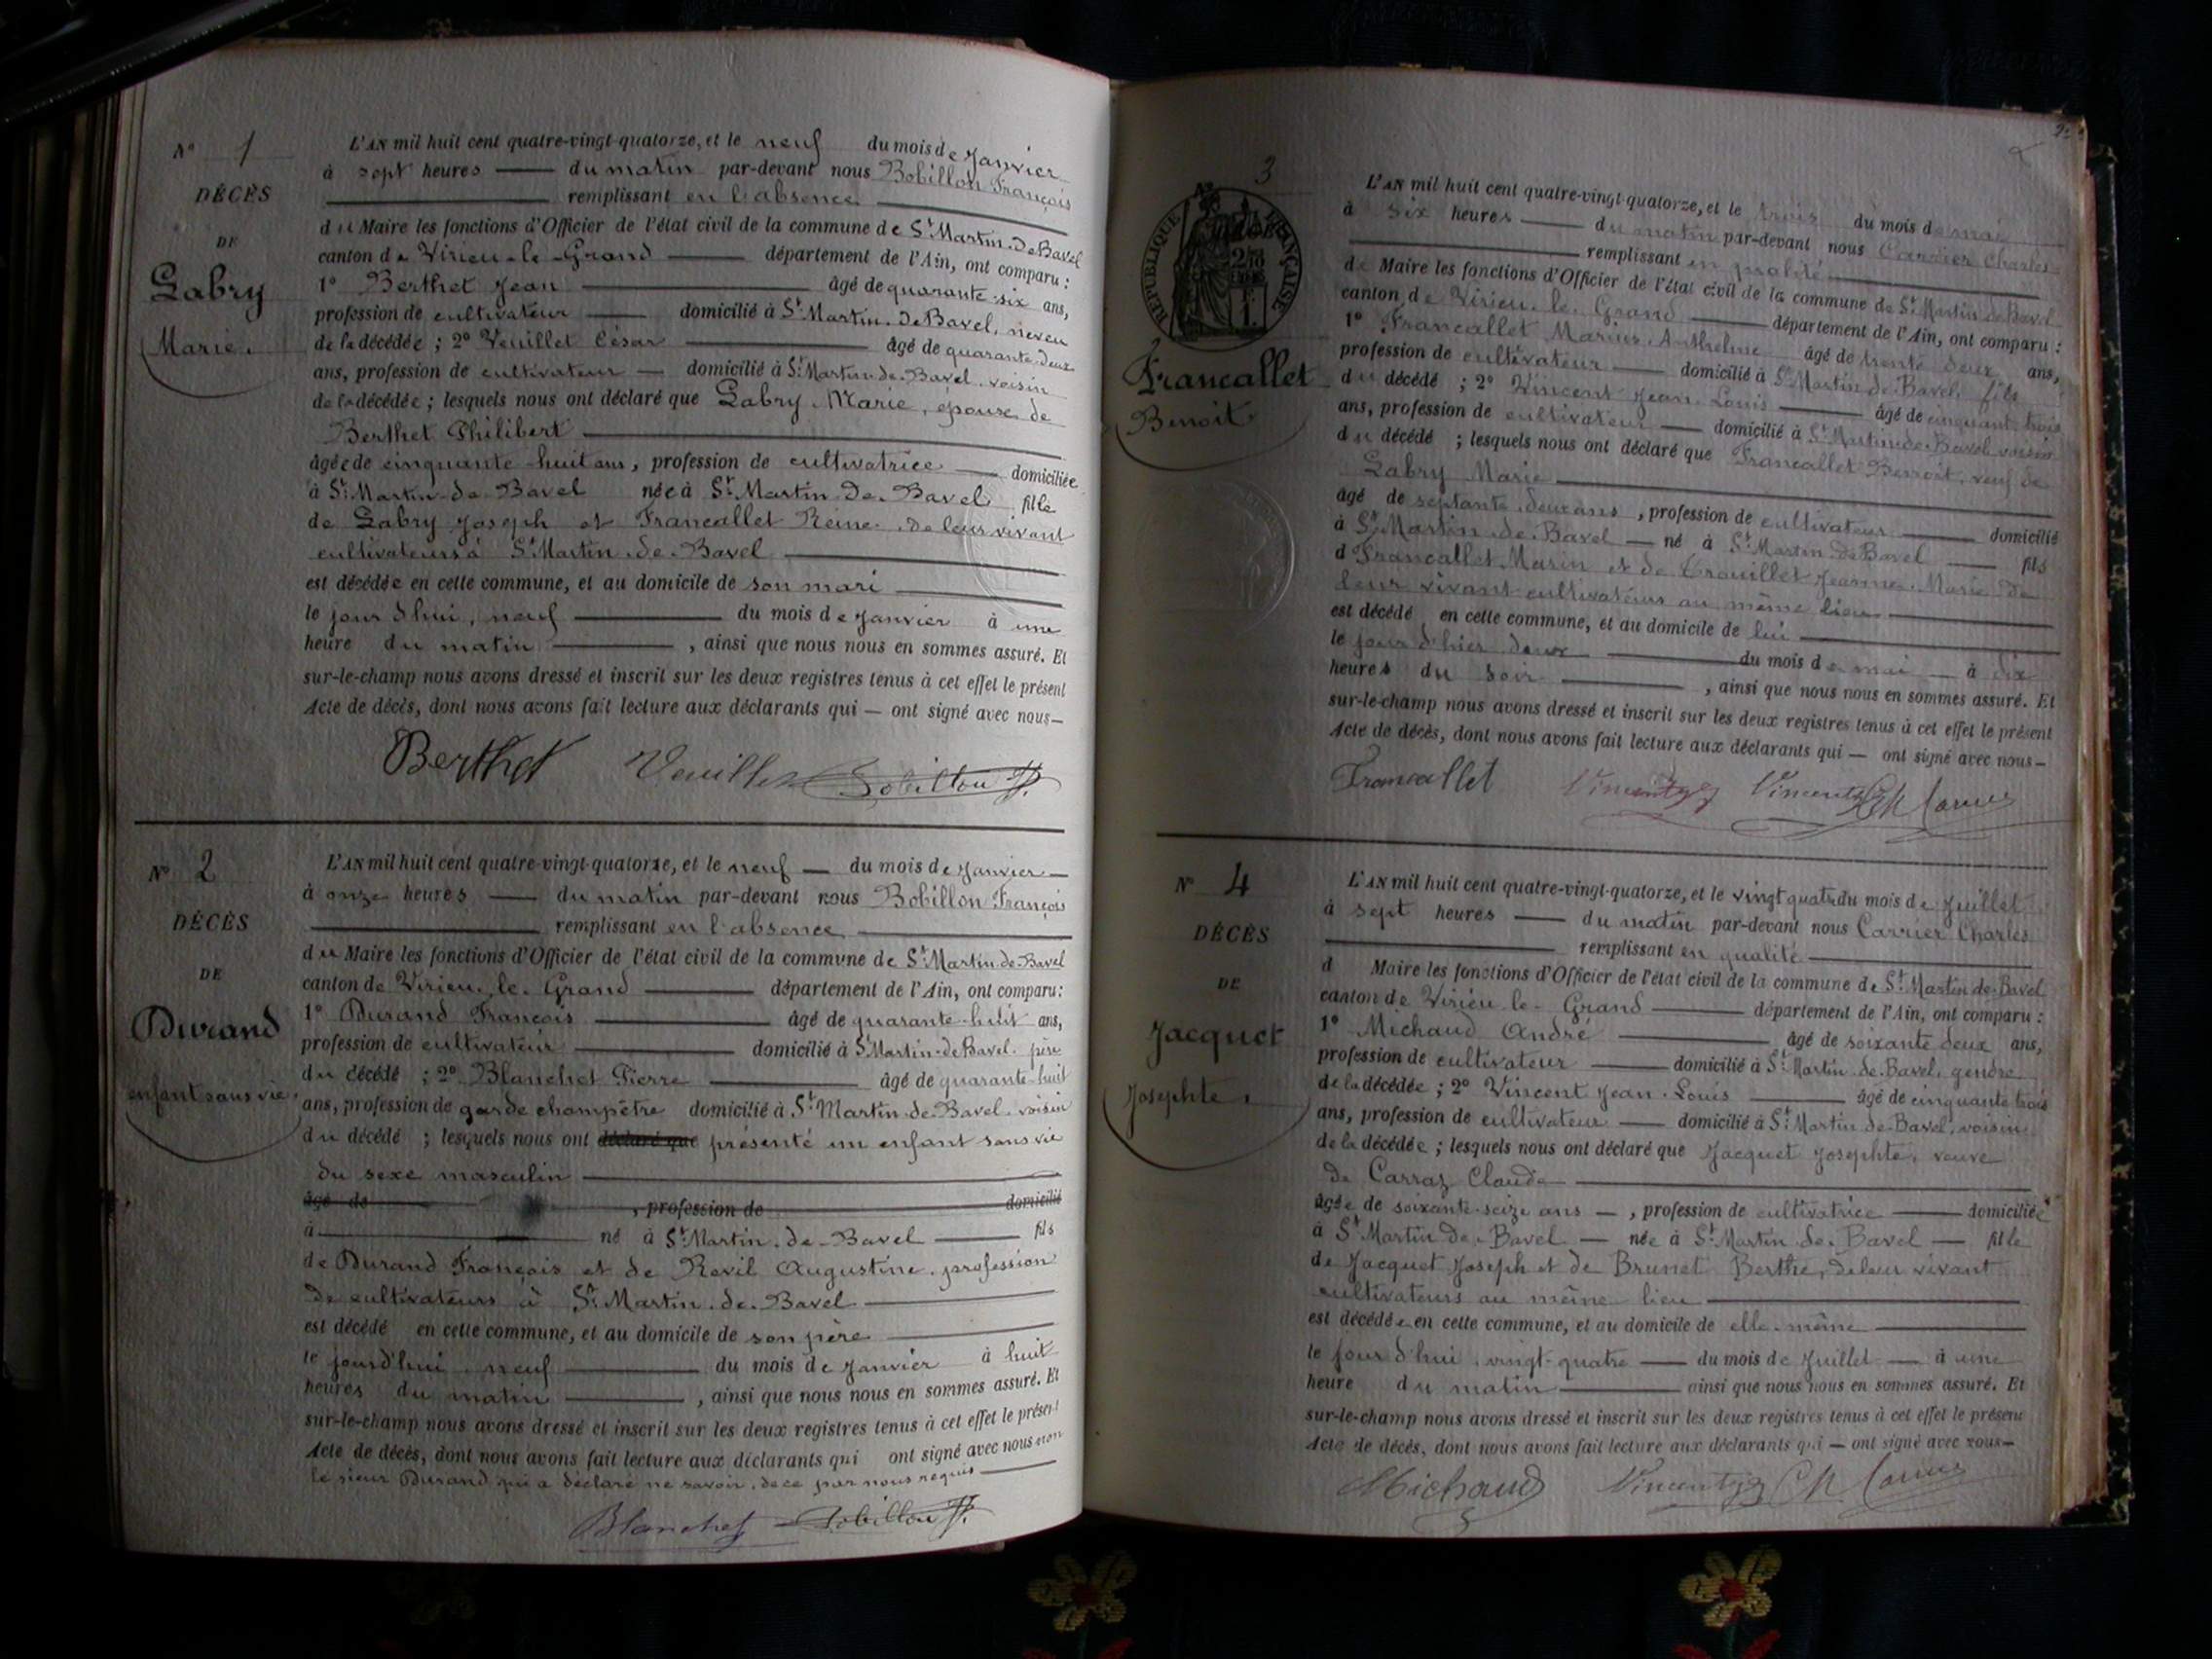 N° 1
DÉCÈS
DE
Labry
Marie.
L'AN mil huit cent quatre-vingt-quatorze, et le neuf du mois de Janvier
à sept heures — du matin par-devant nous Bobillon François
remplissant en l'absence
du Maire les fonctions d'Officier de l'état civil de la commune de St Martin-de-Bavel
canton de Virieu-le-Grand — département de l'Ain, ont comparu :
1° Berthet Jean — âgé de quarante-six ans,
profession de cultivateur — domicilié à St Martin-de-Bavel, neveu
de la décédée ; 2° Veuillet César — âgé de quarante-deux
ans, profession de cultivateur — domicilié à St Martin-de-Bavel, voisin
de la décédée ; lesquels nous ont déclaré que Labry Marie, épouse de
Berthet Philibert
âgée de cinquante-huit ans, profession de cultivatrice — domiciliée
à St Martin-de-Bavel née à St Martin-de-Bavel fille
de Labry Joseph et Francallet Reine, de leur vivant
cultivateurs à St Martin-de-Bavel
est décédée en cette commune, et au domicile de son mari
le jour d'hui, neuf — du mois de Janvier à une
heure du matin — , ainsi que nous nous en sommes assuré. Et
sur-le-champ nous avons dressé et inscrit sur les deux registres tenus à cet effet le présent
Acte de décès, dont nous avons fait lecture aux déclarants qui — ont signé avec nous —
Berthet Veuillet Bobillon F.
N° 2
DÉCÈS
DE
Durand
enfant sans vie.
L'AN mil huit cent quatre-vingt-quatorze, et le neuf — du mois de Janvier —
à onze heures — du matin par-devant nous Bobillon François
remplissant en l'absence
du Maire les fonctions d'Officier de l'état civil de la commune de St Martin-de-Bavel
canton de Virieu-le-Grand — département de l'Ain, ont comparu :
1° Durand François — âgé de quarante-huit ans,
profession de cultivateur — domicilié à St Martin-de-Bavel, père
du décédé ; 2° Blanchet Pierre — âgé de quarante-huit
ans, profession de garde champêtre domicilié à St Martin-de-Bavel, voisin
du décédé ; lesquels nous ont déclaré que présenté un enfant sans vie
du sexe masculin
âgé de , profession de domicilié
à — né à St Martin-de-Bavel — fils
de Durand François et de Revil Augustine, profession
de cultivateurs à St Martin-de-Bavel
est décédé en cette commune, et au domicile de son père
le jourd'hui neuf — du mois de Janvier à huit
heures du matin — , ainsi que nous nous en sommes assuré. Et
sur-le-champ nous avons dressé et inscrit sur les deux registres tenus à cet effet le présent
Acte de décès, dont nous avons fait lecture aux déclarants qui ont signé avec nous non
le sieur Durand qui a déclaré ne savoir, de ce par nous requis
Blanchet Bobillon F.
2
3
RÉPUBLIQUE FRANÇAISE
Francallet
Benoit.
L'AN mil huit cent quatre-vingt-quatorze, et le trois du mois de mai
à six heures — du matin par-devant nous Carrier Charles
remplissant en qualité
de Maire les fonctions d'Officier de l'état civil de la commune de St Martin-de-Bavel
canton de Virieu-le-Grand — département de l'Ain, ont comparu :
1° Francallet Marius Anthelme âgé de trente deux ans,
profession de cultivateur — domicilié à St Martin-de-Bavel, fils
du décédé ; 2° Vincent Jean-Louis — âgé de cinquante trois
ans, profession de cultivateur — domicilié à St Martin-de-Bavel voisin
du décédé ; lesquels nous ont déclaré que Francallet Benoit, veuf de
Labry Marie
âgé de septante deux ans, profession de cultivateur — domicilié
à St Martin-de-Bavel — né à St Martin-de-Bavel — fils
d Francallet Marin et de Trouillet Jeanne-Marie de
leur vivant cultivateurs au même lieu
est décédé en cette commune, et au domicile de lui
le jour d'hier deux — du mois de mai — à dix
heures du soir — , ainsi que nous nous en sommes assuré. Et
sur-le-champ nous avons dressé et inscrit sur les deux registres tenus à cet effet le présent
Acte de décès, dont nous avons fait lecture aux déclarants qui — ont signé avec nous —
Francallet Vincent Vincent Ch Carrier
N° 4
DÉCÈS
DE
Jacquet
Josephte.
L'AN mil huit cent quatre-vingt-quatorze, et le vingt quatre du mois de Juillet
à sept heures — du matin par-devant nous Carrier Charles
remplissant en qualité
d Maire les fonctions d'Officier de l'état civil de la commune de St Martin-de-Bavel
canton de Virieu-le-Grand — département de l'Ain, ont comparu :
1° Michaud André — âgé de soixante deux ans,
profession de cultivateur — domicilié à St Martin-de-Bavel, gendre
de la décédée ; 2° Vincent Jean-Louis — âgé de cinquante trois
ans, profession de cultivateur — domicilié à St Martin-de-Bavel, voisin
de la décédée ; lesquels nous ont déclaré que Jacquet Josephte, veuve
de Carraz Claude
âgée de soixante-seize ans — , profession de cultivatrice — domiciliée
à St Martin-de-Bavel — née à St Martin-de-Bavel — fille
de Jacquet Joseph et de Brunet Berthe, de leur vivant
cultivateurs au même lieu
est décédée en cette commune, et au domicile de elle-même
le jour d'hui, vingt-quatre — du mois de Juillet — à une
heure du matin — ainsi que nous nous en sommes assuré. Et
sur-le-champ nous avons dressé et inscrit sur les deux registres tenus à cet effet le présent
Acte de décès, dont nous avons fait lecture aux déclarants qui — ont signé avec nous —
Michaud Vincent Ch. Carrier